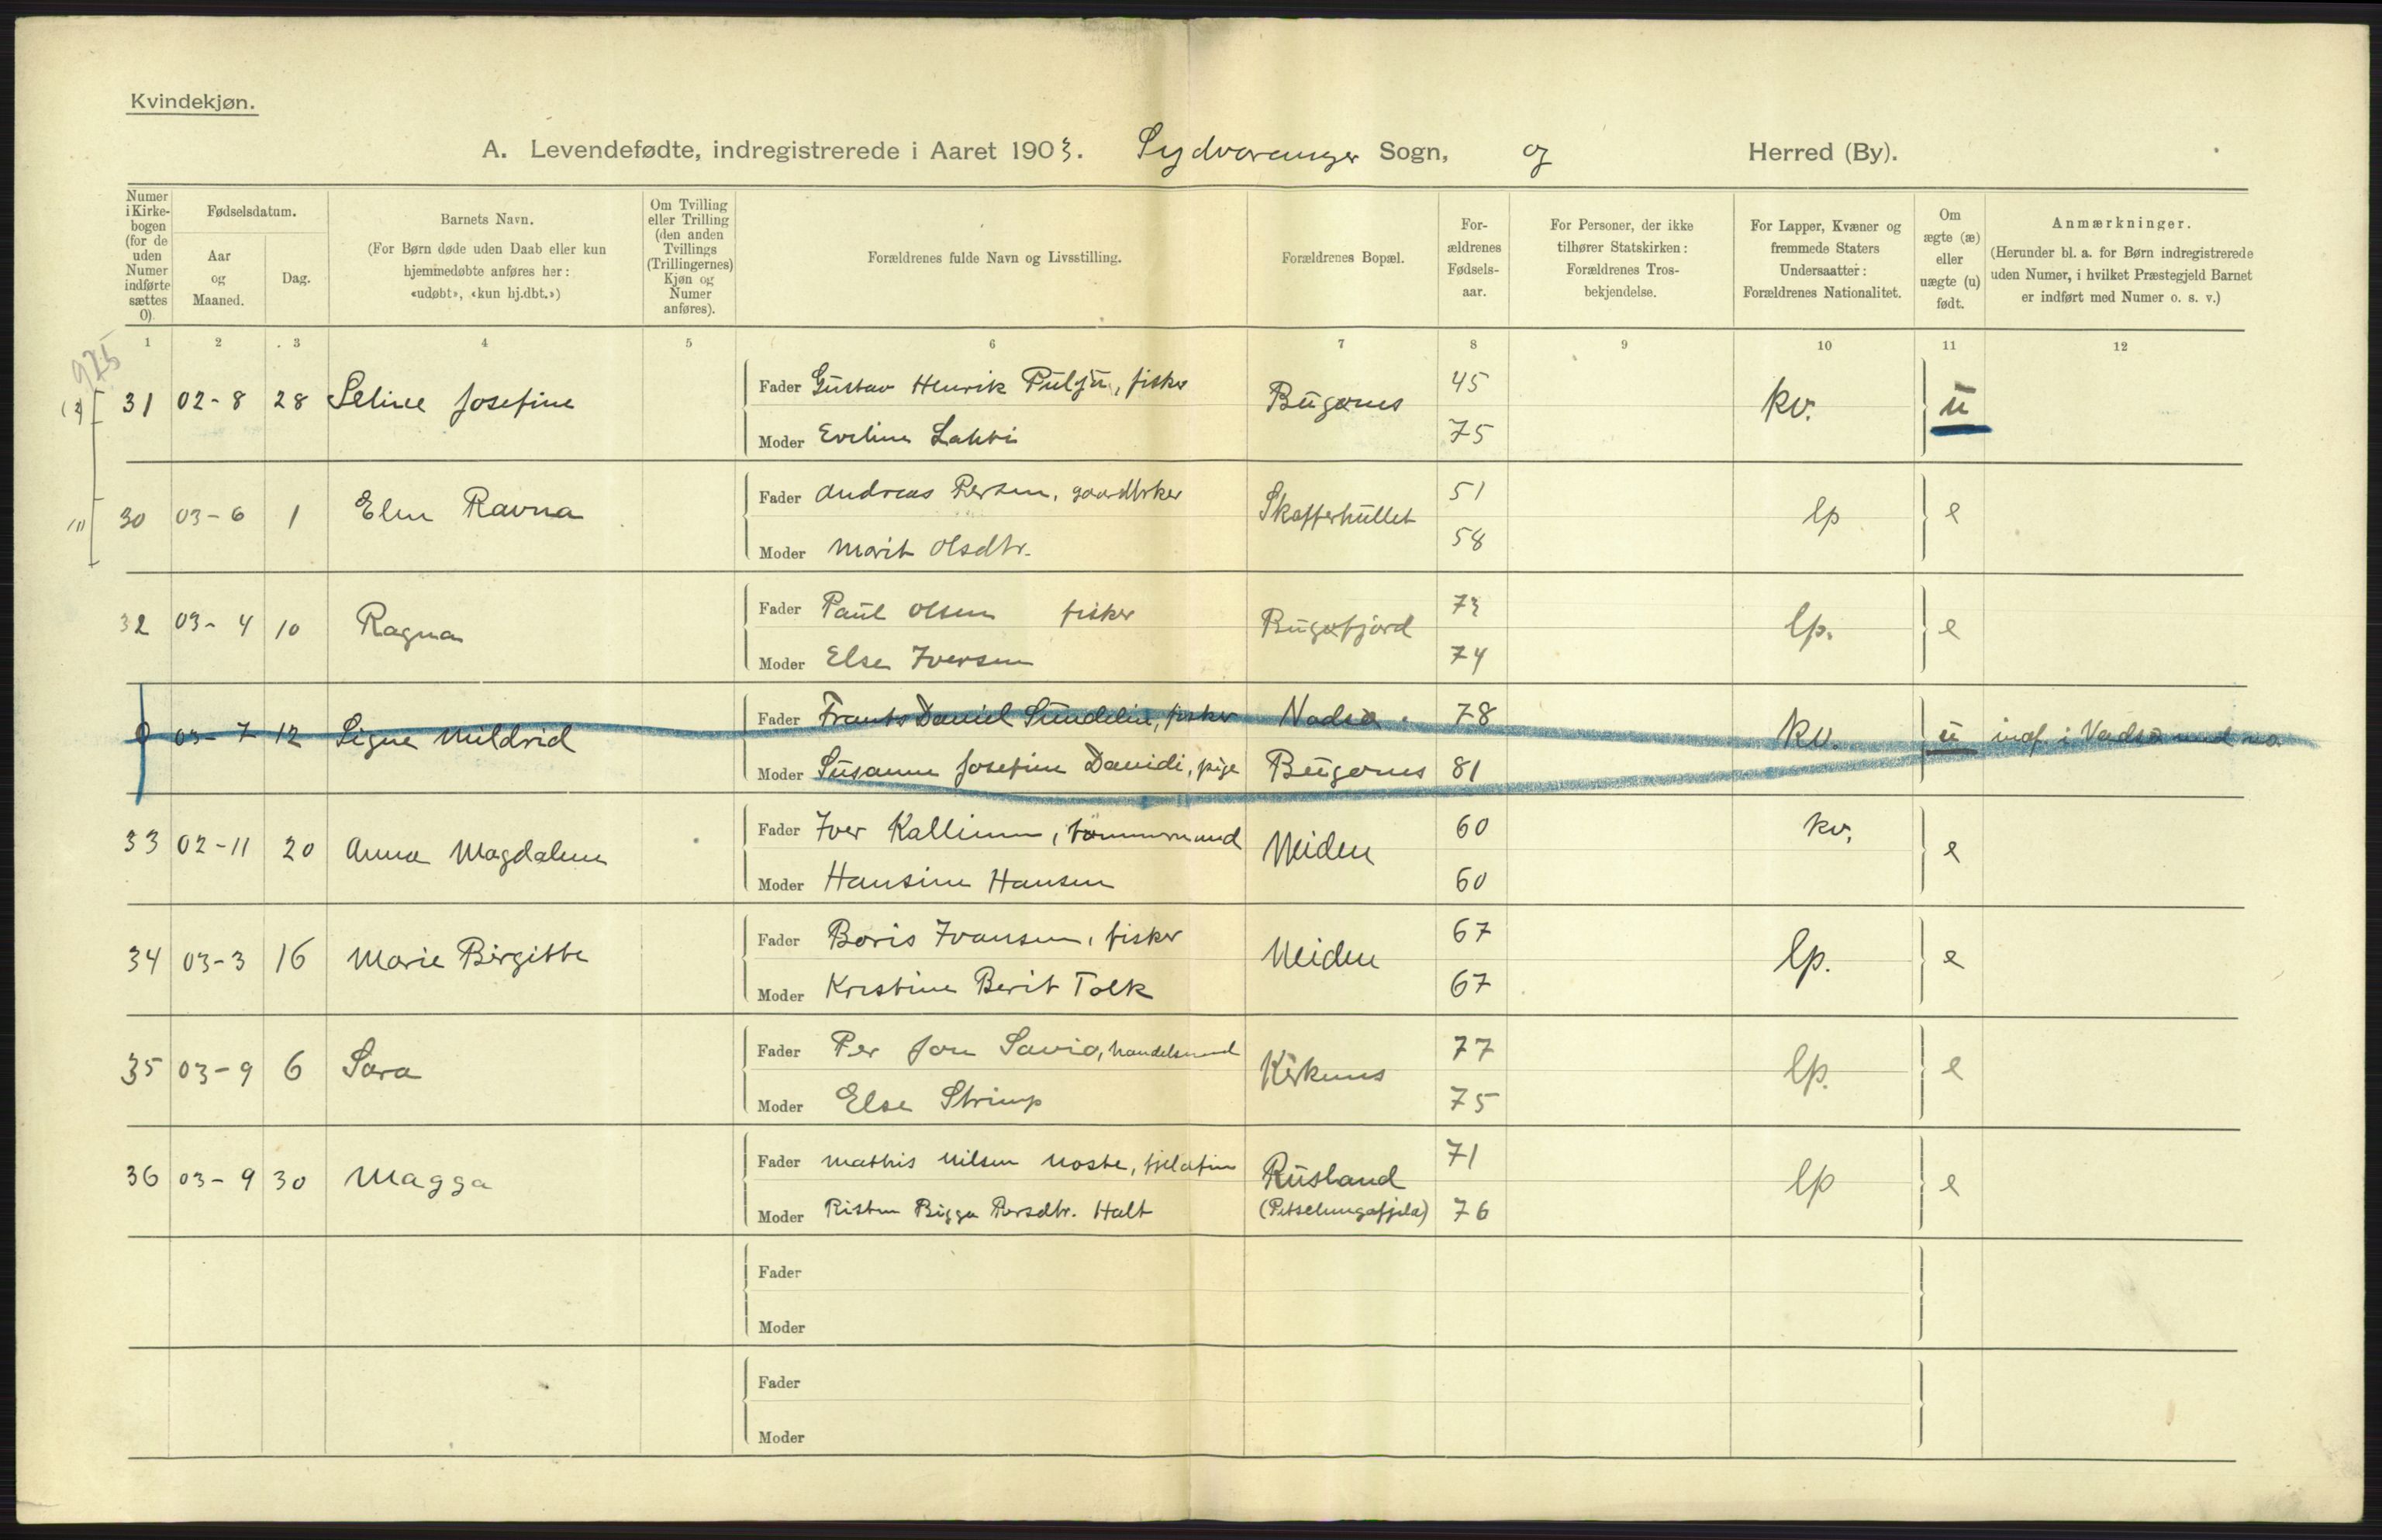 Kvindekjøn.
A. Levendefødte, indregistrerede i Aaret 1903. Sydvaranger Sogn, og Herred (By).
Numer i Kirkebogen (for de uden Numer indførte sættes 0)
Fødselsdatum.
Aar og Maaned.
Dag.
Barnets Navn.
(For Børn døde uden Daab eller kun hjemmedøbte anføres her: «udøbt», «kun hj.dbt.»)
Om Tvilling eller Trilling (den anden Tvillings (Trillingernes) Kjøn og Numer anføres).
Forældrenes fulde Navn og Livsstilling.
Forældrenes Bopæl.
For-ældrenes Fødsels-aar.
For Personer, der ikke tilhører Statskirken: Forældrenes Tros-bekjendelse.
For Lapper, Kvæner og fremmede Staters Undersaatter: Forældrenes Nationalitet.
Om ægte (æ) eller uægte (u) født.
Anmærkninger.
(Herunder bl. a. for Børn indregistrerede uden Numer, i hvilket Præstegjeld Barnet er indført med Numer o. s. v.)
1 2 3 4 5 6 7 8 9 10 11 12
925
31 02-8 28 Seline Josefine Fader Gustav Henrik Pulju, fisker Bugønes 45 kv. u
Moder Eveline Lahti 75
30 03-6 1 Elen Ravna Fader Andreas Persen, gaardbrker Skafferhullet 51 lp e
Moder Marit Olsdtr. 58
32 03-4 10 Ragna Fader Paul Olsen fisker Bugøfjord 73 lp. e
Moder Else Iversen 74
0 03-7 12 Signe Mildrid Fader Frants Daniel Sundelin, fisker Vadsø 78 kv. u indf. i Vadsø med no.
Moder Susanne Josefine Davidi, pige Bugønes 81
33 02-11 20 Anna Magdalene Fader Iver Kallinen, tømmermand Neiden 60 kv. e
Moder Hansine Hansen 60
34 03-3 16 Marie Birgitte Fader Boris Ivansen, fisker Neiden 67 lp. e
Moder Kristine Berit Tolk 67
35 03-9 6 Sara Fader Per Jon Savio, handelsmand Kirkenes 77 lp. e
Moder Else Strimp 75
36 03-9 30 Magga Fader Mathis Nilsen Noste, fjeldfin Rusland 71 lp e
Moder Risten Bigga Persdtr. Halt 76
Fader
Moder
Fader
Moder